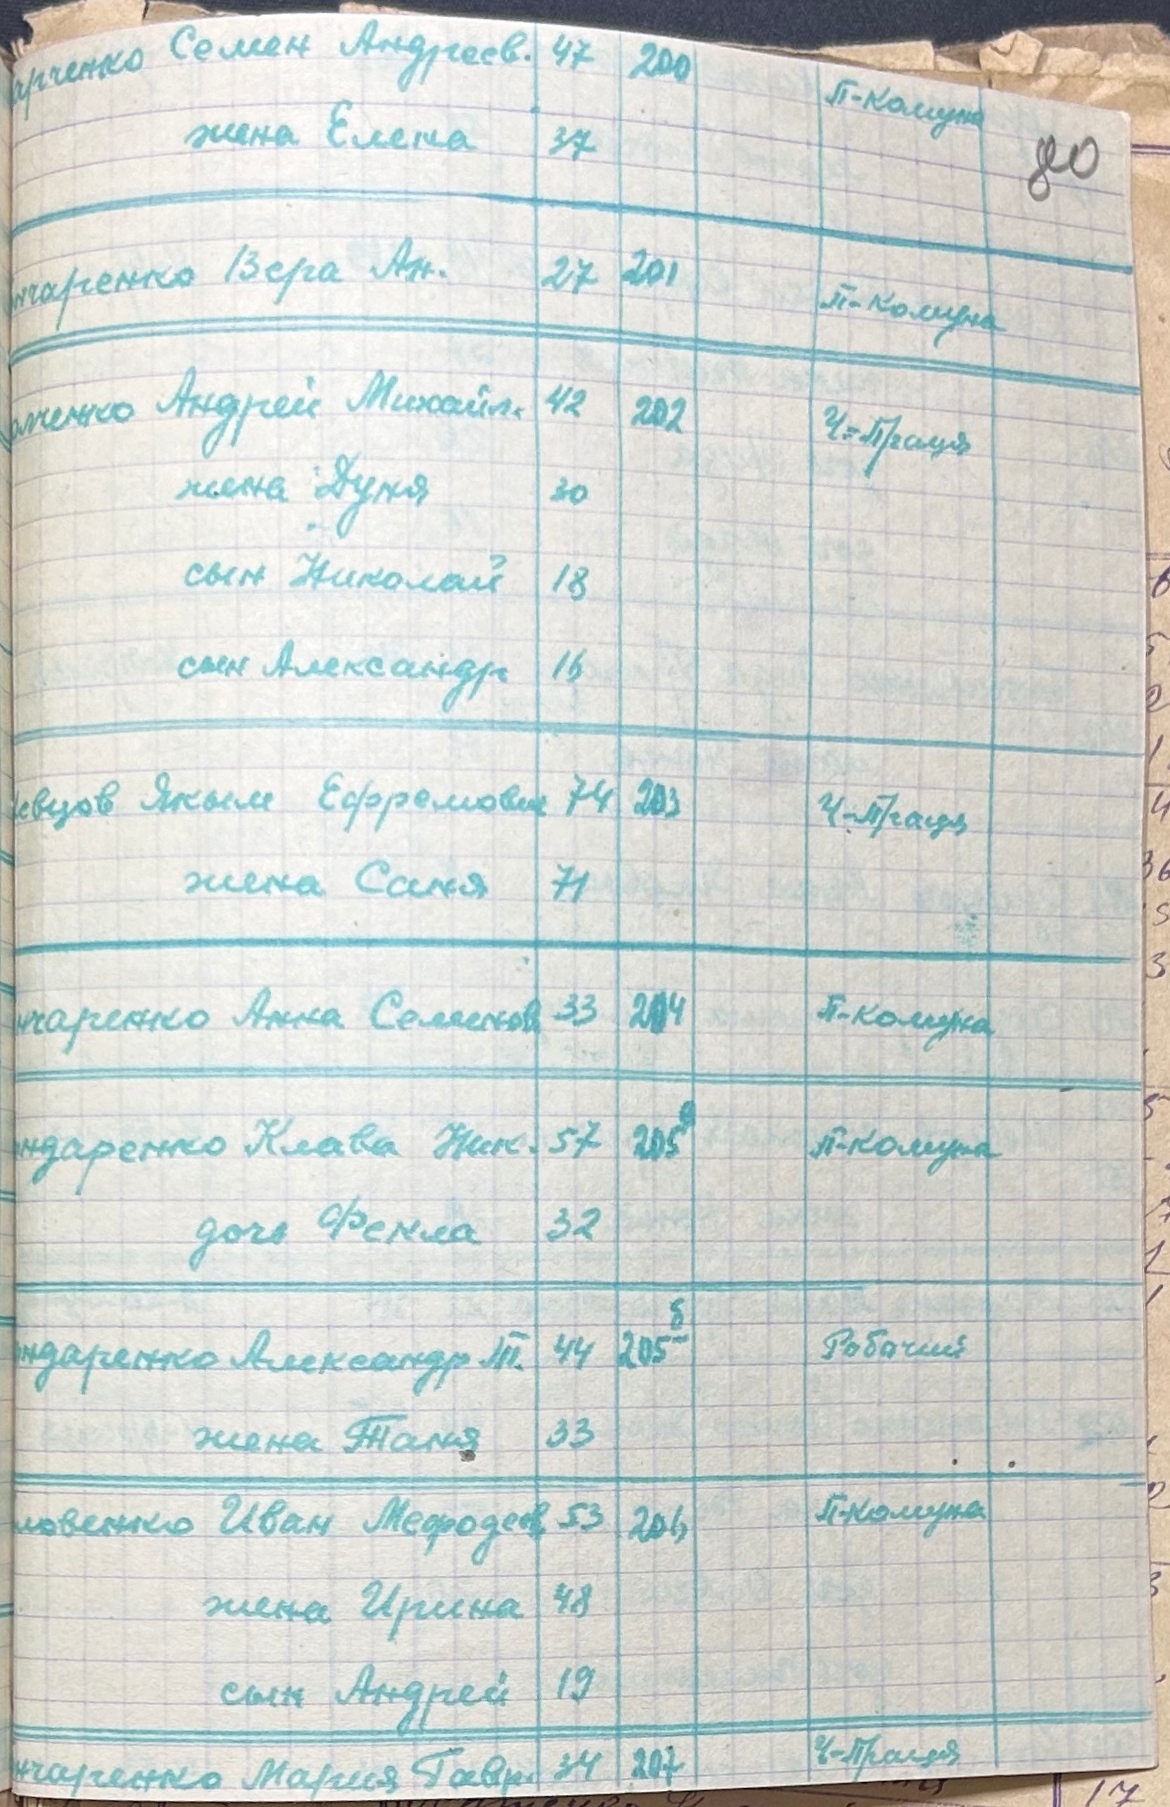 арченко Семен Андреев. 47 200 П-Комуна
жена Елена 37
80
нчаренко Вера Ан. 27 201 П-Комуна
омченко Андрей Михайл. 42 202 Ч-Праця
жена Дуня 30
сын Николай 18
сын Александр 16
евцов Яким Ефремович 74 203 Ч-Праця
жена Саня 71
нчаренко Анна Семенов 33 204 П-комуна
ндаренко Клава Ник. 57 205а П-Комуна
дочь Фекла 32
ндаренко Александр П. 44 205б Рабочий
жена Таня 33
ловенко Иван Мефодеев 53 206 П-Комуна
жена Ирина 48
сын Андрей 19
нчаренко Мария Гавр. 34 207 Ч-Праця
17